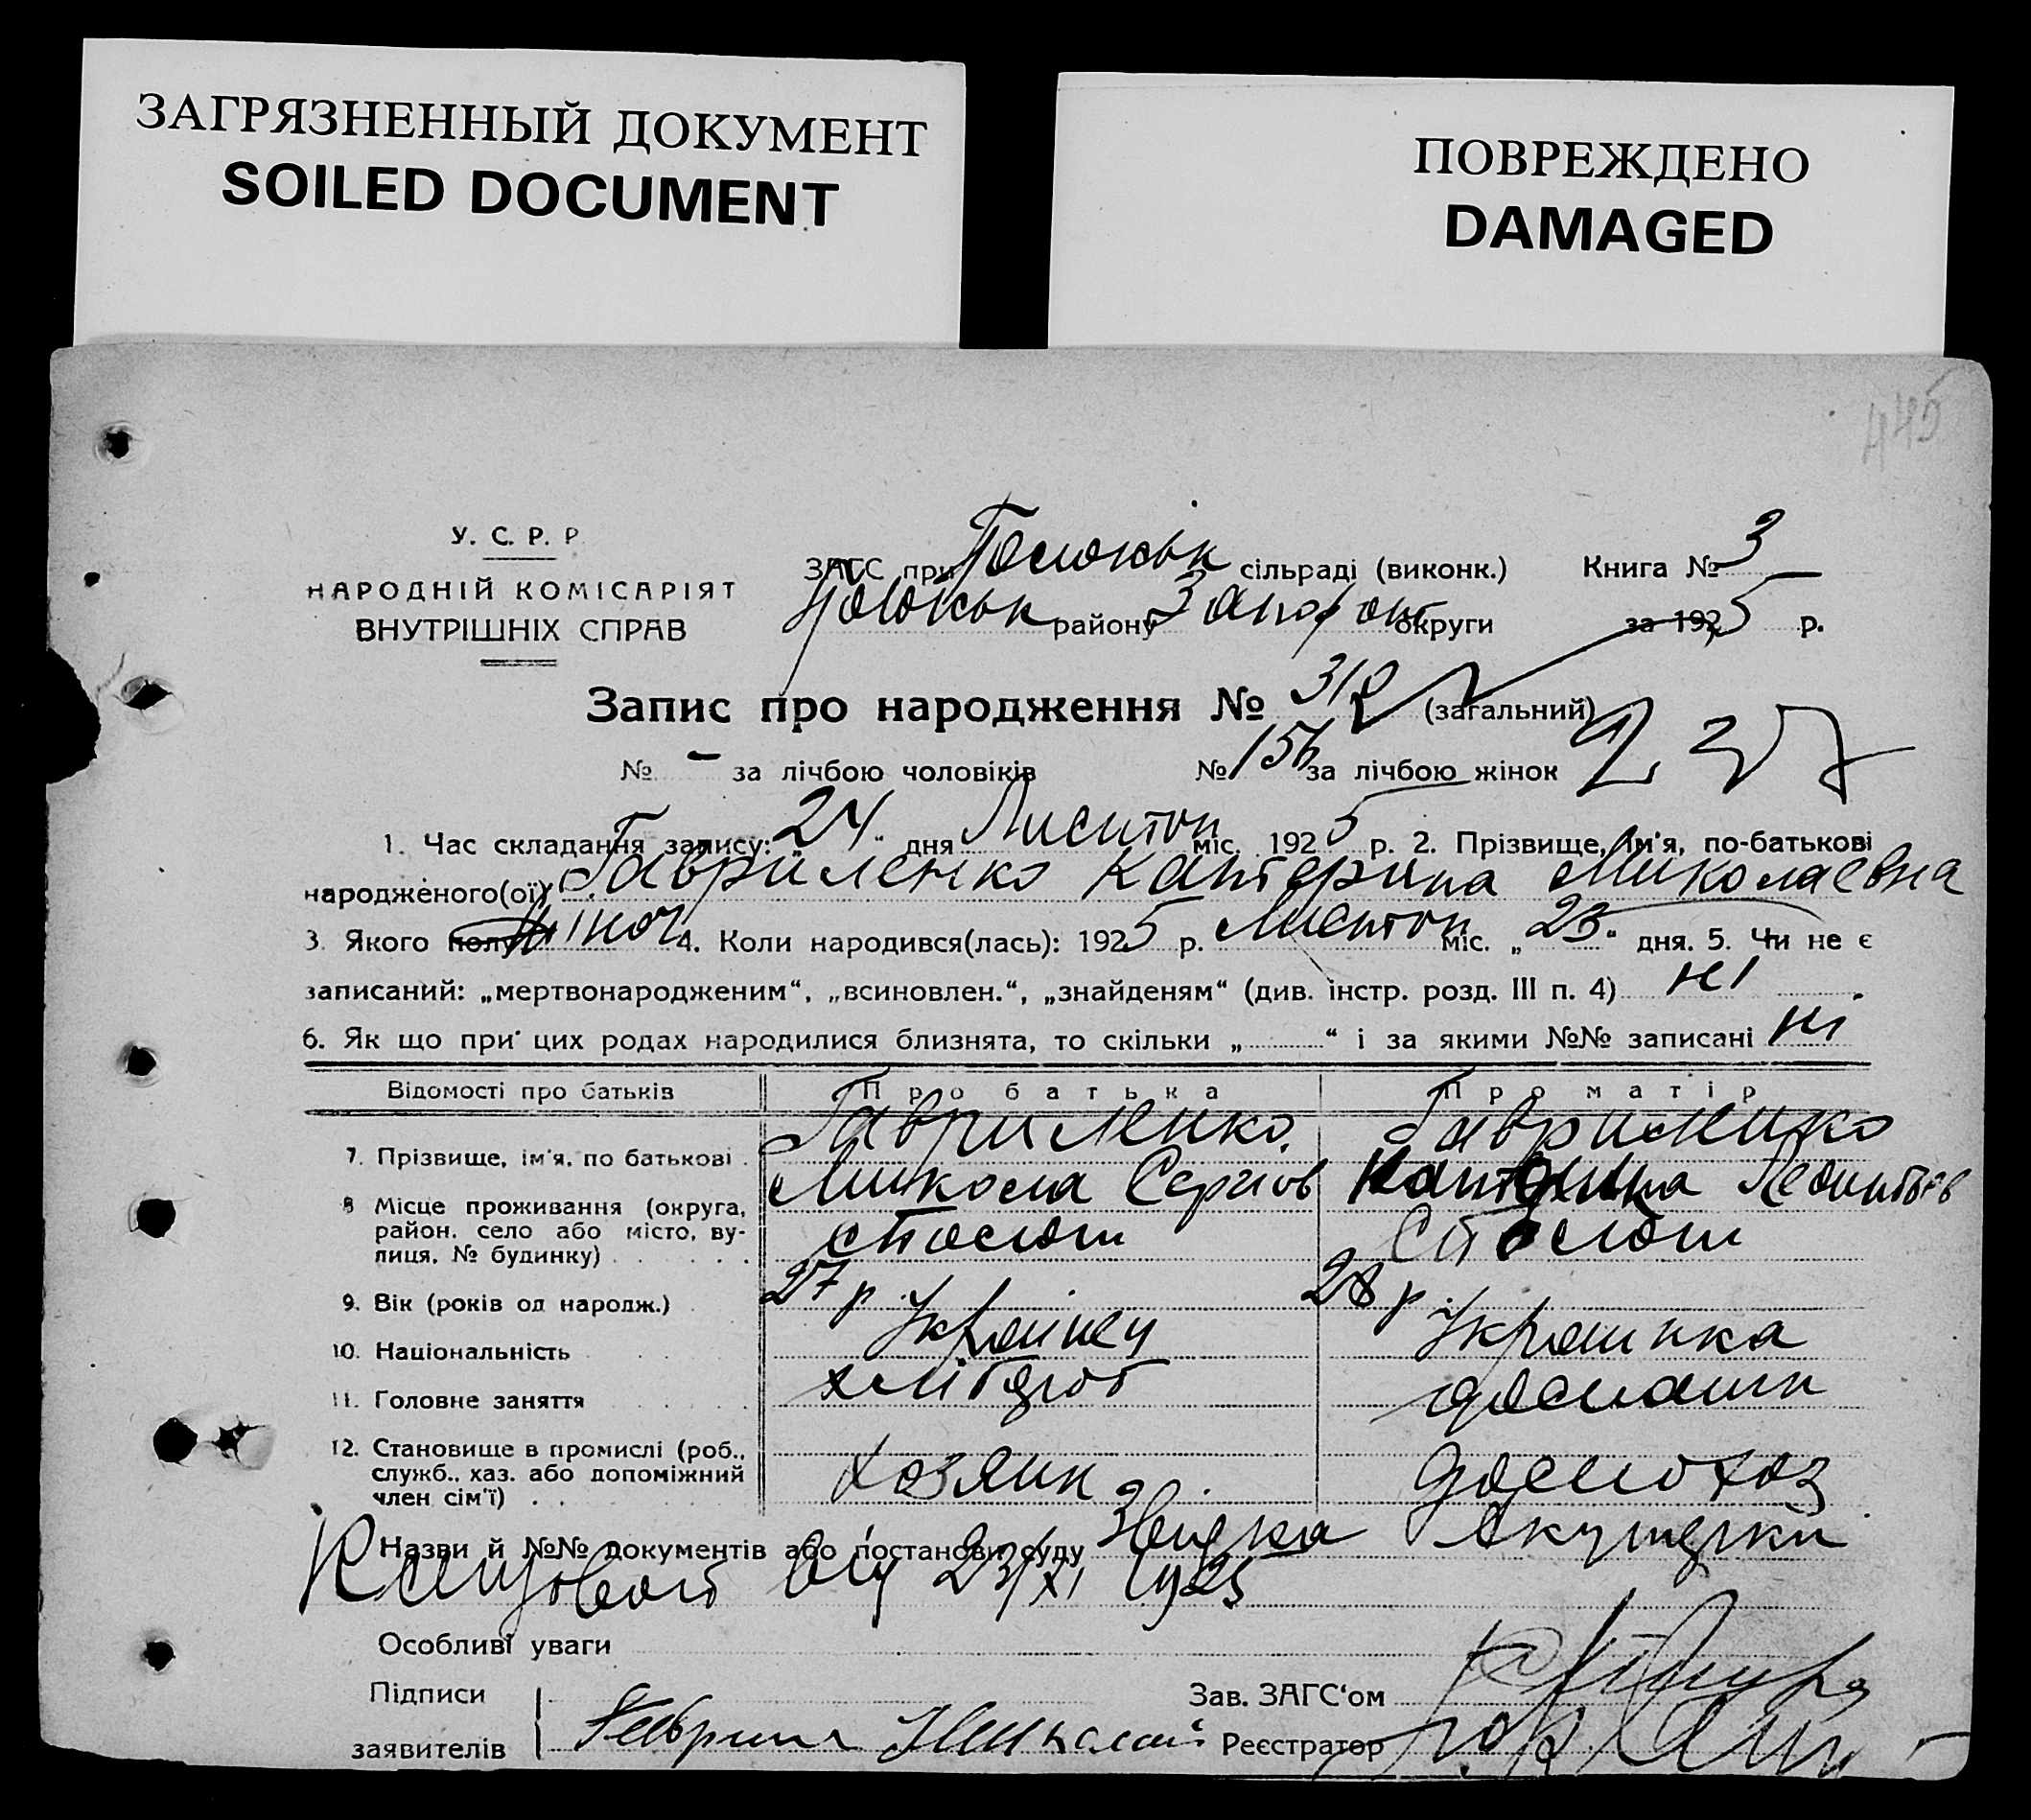 ЗАГРЯЗНЕННЫЙ ДОКУМЕНТ
SOILED DOCUMENT
ПОВРЕЖДЕНО
DAMAGED
445
У. С. Р. Р
НАРОДНІЙ КОМІСАРІЯТ
ВНУТРІШНІХ СПРАВ
ЗАГС при сільраді (виконк.) Книга № 3
району Запор округи за 1925 р.
Запис про народження № 310 (загальний)
№ - за лічбою чоловіків № 156 за лічбою жінок 237
1. Час складання запису: „24“ дня Листоп міс. 1925 р. 2. Прізвище, ім'я, по-батькові
народженого(ої) Гавриленко Катерина Миколаевна
3. Якого полу жіноч 4. Коли народився(лась): 1925 р. Листоп міс. „23“ дня. 5. Чи не є
записаний: „мертвонародженим“, „всиновлен.“, „знайденям“ (див. інстр. розд. III п. 4) ні
6. Як що при цих родах народилися близнята, то скільки „ “ і за якими №№ записані ні
Відомості про батьків Про батька Про матір
7. Прізвище, ім'я, по батькові Гавриленко Микола Сергіов Гавриленко Катерина Леонтьев
8 Місце проживання (округа, район, село або місто, вулиця, № будинку)
9. Вік (років од народж.) 27 р. 28 р.
10. Національність Українец Украинка
11. Головне заняття хлібороб
12. Становище в промислі (роб., служб., хаз. або допоміжний член сім'ї) хозяин домохоз
Назви й №№ документів або постанови суду Акушерки
від 23/XI 1925
Особливі уваги
Підписи Зав. ЗАГС'ом
заявителів Реєстратор